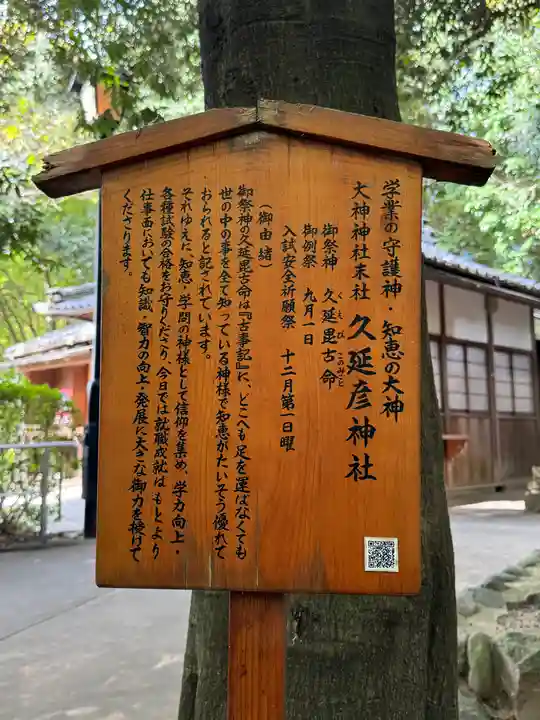 学業の守護神・知恵の大神
大神神社末社 久延彦神社
御祭神 久延毘古命
くえびこのみこと
御例祭 九月一日
入試安全祈願祭 十二月第一日曜
(御由緒)
御祭神の久延毘古命は『古事記』に、どこへも足を運ばなくても
世の中の事を全て知っている神様で、知恵がたいそう優れて
おられると記されています。
それゆえに、知恵・学問の神様として信仰を集め、学力向上・
各種試験の合格をお守りくださり、今日では就職成就はもとより
仕事面においても知識・智力の向上・発展に大きな御力を授けて
くださります。